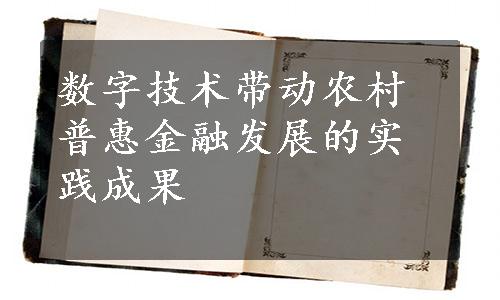 数字技术带动农村
普惠金融发展的实
践成果